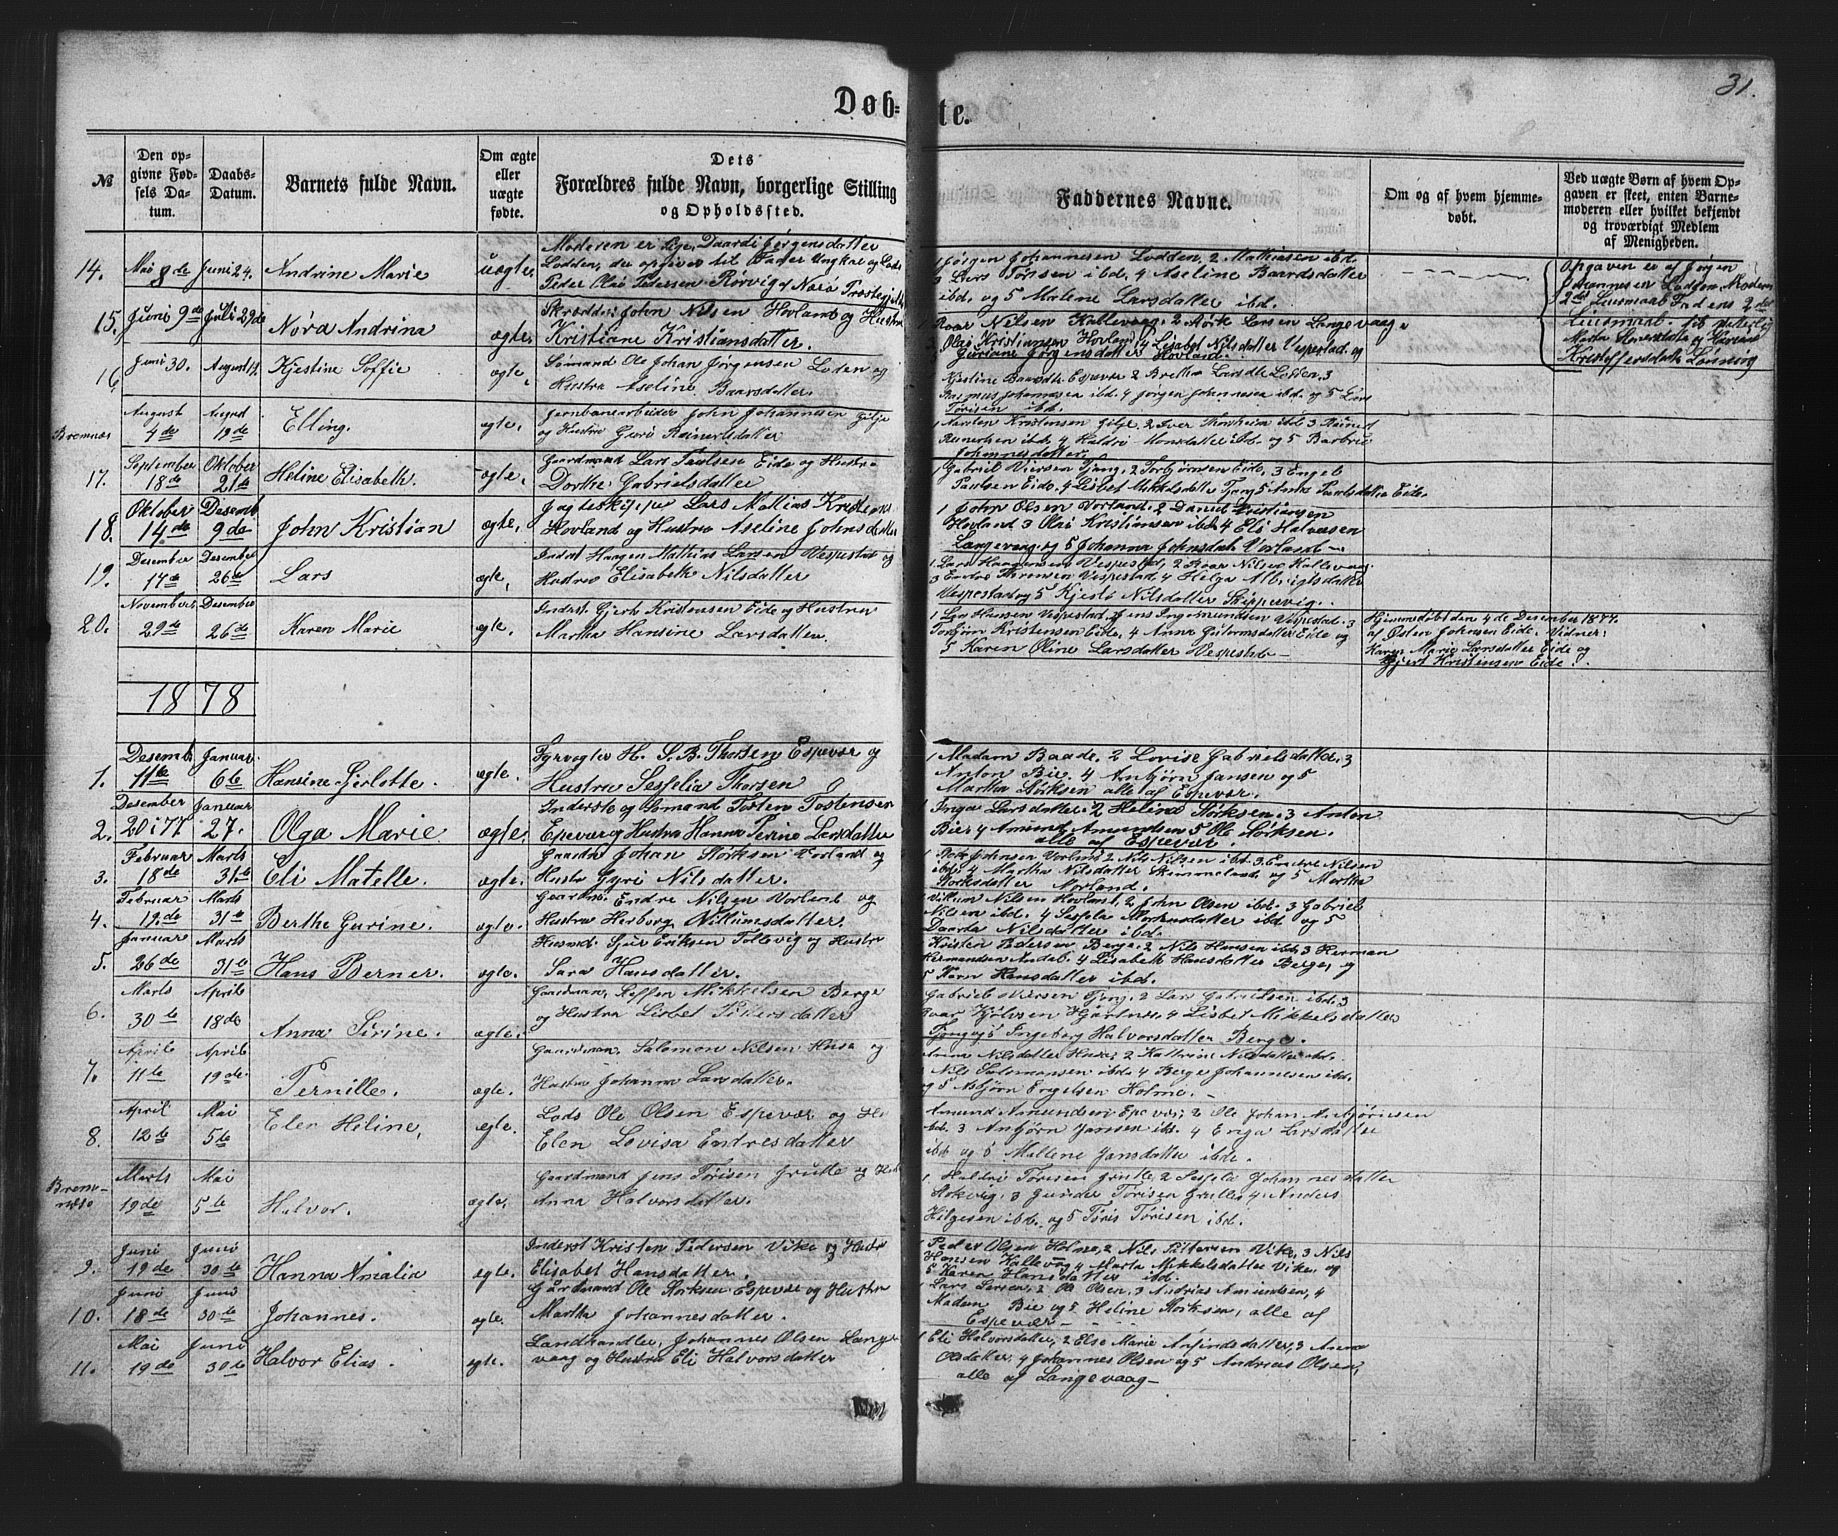 31.
Døb= te.
№
Den op-
givne Fød-
sels Da-
tum.
Daabs-
Datum.
Barnets fulde Navn.
Om ægte
eller
uægte
fødte.
Dets
Forældres fulde Navn, borgerlige Stilling
og Opholdssted.
Faddernes Navne.
Om og af hvem hjemme-
døbt.
Ved uægte Børn af hvem Op-
gaven er skeet, enten Barne-
moderen eller hvilket bekjendt
og troværdigt Medlem
af Menigheden.
14. Mai 8de Juni 24. Andrine Marie uægte
Moderen er Jørgensdatter
Lodden, du opgiver til Fader Ungkal og
Peder Olai Pedersen Rørvig
1 Jørgen Johannesen Lodden, 2 Mathiasen ibd.
3 Lars Tønsen ibd, 4 Aseline Baardsdatter
ibd. og 5 Malene Larsdatter ibd.
Opgaven er af Jørgen
Johannesen Lodden, Moderen
2det Leiermaal Faderens 2det
Leiermaal.
15. Juni 9de Juli 29de Nora Andrina ægte.
John Nilsen Hovland og Hustru
Kristiane Kristiansdatter.
Roar Nilsen Kallevaag, 2 Størk Larsen Langevaag
Olai Kristiansen Hovland, 4 Lisabet Nilsdatter Vespestad og
5 Guriane Jørgensdatter Hovland.
16 Juni 30. August Kjestine Soffie ægte.
Sømand Ole Johan Jørgensen Loden og
Hustru Aseline Baarsdatter.
Kjestine Baardsdt Espevær 2 Larsdt 3
Rasmus Johannesen ibd. 4 Jørgen Johannesen ibd. og 5 Lars
Tørisen ibd.
Bremnæs August 4de August 19de Elling. ægte.
Jernbanearbeider John Johannesen Gilje
og Hustru Guro Reinertsdatter
Kristensen Gilje, 2 Iver Thorheim ibd. 3 Reinert
ibd, 4 Haldri Monsdatter ibd. og 5 Barbro
Johannesdatter.
17. September 18de Oktober 21de Heline Elisabeth. ægte.
Gaardmand Lars Paulsen Eide og Hustru
Dorthe Gabrielsdatter
1 Gabriel Tjong, 2 Torbjørnsen Eide, 3 Engel
Paulsen Eide, 4 Lisbet Mikkelsdatter Tjong 5 Paulsdatter Eide.
18. Oktober 14de Desemb 9de John Kristian ægte,
Lars Mathias
Hovland og Hustru Aseline Johnsdatter
1 John Olsen Vorland, 2 Daniel Kristiansen
Hovland 3 Olai Kristiansen ibd. 4 Eli Halvorsen
Langevaag og 5 Johanna Johnsdatr Vorland.
19. Desember 17de Desember 26de Lars ægte,
Inderst Haagen Mathias Larsen Vespestad og
Hustru Elisabeth Nilsdatter
1 Lars Haagensen Vespestad, 2 Roar Nilsen Kallevaag.
3 Endre Vespestad, 4 Helga
Vespestad og 5 Kjersti Nilsdatter Skippervig.
20. November 29de Desember 26de Karen Marie ægte.
Inderst. Gjert Kristensen Eide og Hustru
Martha Hansine Larsdatter
1 Hansen Vespestad, 2 Jens Ingemundsen Vespestad. 3
Torbjørn Kristensen Eide, 4 Anna Eide og
5 Karen Oline Larsdatter Vespestad.
Hjemmedøbt den 4de Desember 1877.
af Østen Johnsen Eide. Vidner:
Karen Marie Larsdatter Eide og
Gjert Kristensen Eide.
1878
1. Desemb. 11te Januar 6te Hansine Gjerlotte. ægte.
Fyrvogter H. S. B. Thorsen Espevær og
Hustru Sesselia Thorsen
1 Madam Baade, 2 Lovise Gabrielsdatter, 3
Anton Bie, 4 Anbjørn Jansen og 5
Martha Størksen alle af Espevær.
2. Desember 20 i 77 Januar 27. Olga Marie ægte.
Inderste og Sømand Tosten Tostensen
Espevær og Hustru Hanna Perine Larsdatter
1 Inga Larsdatter, 2 Heline Størksen, 3 Anton
Bie, 4 Amund Amundsen 5 Ole Størksen.
alle af Espevær.
3. Februar 18de Marts 31te Eli Matelle. ægte.
Johan Størksen Vorland og
Hustru Gyri Nilsdatter.
Johnsen Vorland, 2 Nils Nilsen ibd. 3 Endre Nilsen
ibd. 4 Martha Nilsdatter og 5 Martha
Størksdatter Vorland.
4. Februar 19de. Marts 31te Berthe Gurine. ægte.
Gaardm. Endre Nilsen Vorland og
Hustru Herborg Villumsdatter.
Villum Nilsen Hovland, 2 John Olsen ibd. 3 Gabriel
Nilsen ibd. 4 Sesfela ibd og 5
Nilsdatter ibd.
5. Januar 26de Marts 31te Hans Berner. ægte.
Husmd. Sjur Eriksen Tollevig og Hustru
Sara Hansdatter.
Kristen Pedersen Berge, 2 Nils Hansen ibd. 3 Herman
Hermandsen 4 Lisabeth Hansdatter Berge, og
5 Karn Hansdatter ibd.
6. Marts 30te April 18de Anna Sirine. ægte.
Gaardman. Steffen Mikkelsen Berge
og Hustru Lisbet Pettersdatter
Gabriel Tjong, 2 Lars Gabrielsen ibd. 3
4 Lisbet Mikkelsdatter
Tjong og 5 Ingeborg Halvorsdatter Berge.
7. April 11te April 19de. Pernille. ægte.
Gaardman. Salomon Nilsen Huse og
Hustru Johanna Larsdatter.
Anna Nilsdatter Huse, 2 Kathrine Nilsdatter ibd.
Nils Salomonsen ibd. 4 Berge Johannesen ibd.
og 5 Asbjørn Engelsen Holme.
8. April 12te Mai 5te Elen Heline, ægte.
Lods Ole Olsen Espevær og
Elen Lovisa Endresdatter
Amund Amundsen Espevær, 2 Ole Johan Anbjørnsen
ibd. 3 Anbjørn Jansen ibd. 4 Enga Larsdatter
ibd og 5 Mallene Jansdatter ibde.
Bremnæs. Marts 19de Mai 5te Halvor. ægte.
Gaardmand Jens Tørisen Grutle og
Anna Halvorsdatter.
1 Haldri Tørisen Grutle, 2 Sesfela Johannesdatter
Rokvig, 3 Gunder Tørisen Grutle, 4 Anders
Helgesen ibd. og 5 Tøris Tørisen ibd.
9. Juni 19de Juni 30te Hanna Amalia ægte.
Inderst Kristen Pedersen Vike og Hustru
Elisabet Hansdatter.
1 Peder Olsen Holme, 2 Nils Pettersen Vike, 3 Nils
Hansen Kallevåg, 4 Marta Mikkelsdatter Vike, og
5 Karen Hansdatter ibd.
10. Juni 18de Juni 30te Johannes. ægte.
Gårdmand Ole Størksen Espevær og Hustru
Martha Johannesdatter.
1 Lars Larsen, 2 Ole Olsen, 3 Andrias Amundsen, 4
Madam Bie og 5 Heline Størksen, alle af
Espevær
11. Mai 19de Juni 30te Halvor Elias. ægte.
Landhandler, Johannes Olsen Lange-
vaag og Hustru Eli Halvorsdatter
1 Eli Halvorsdatter, 2 Else Marie Anfindsdatter, 3 Anna
Olsdatter, 4 Johannes Olsen og 5 Andreas Olsen,
alle af Langevaag